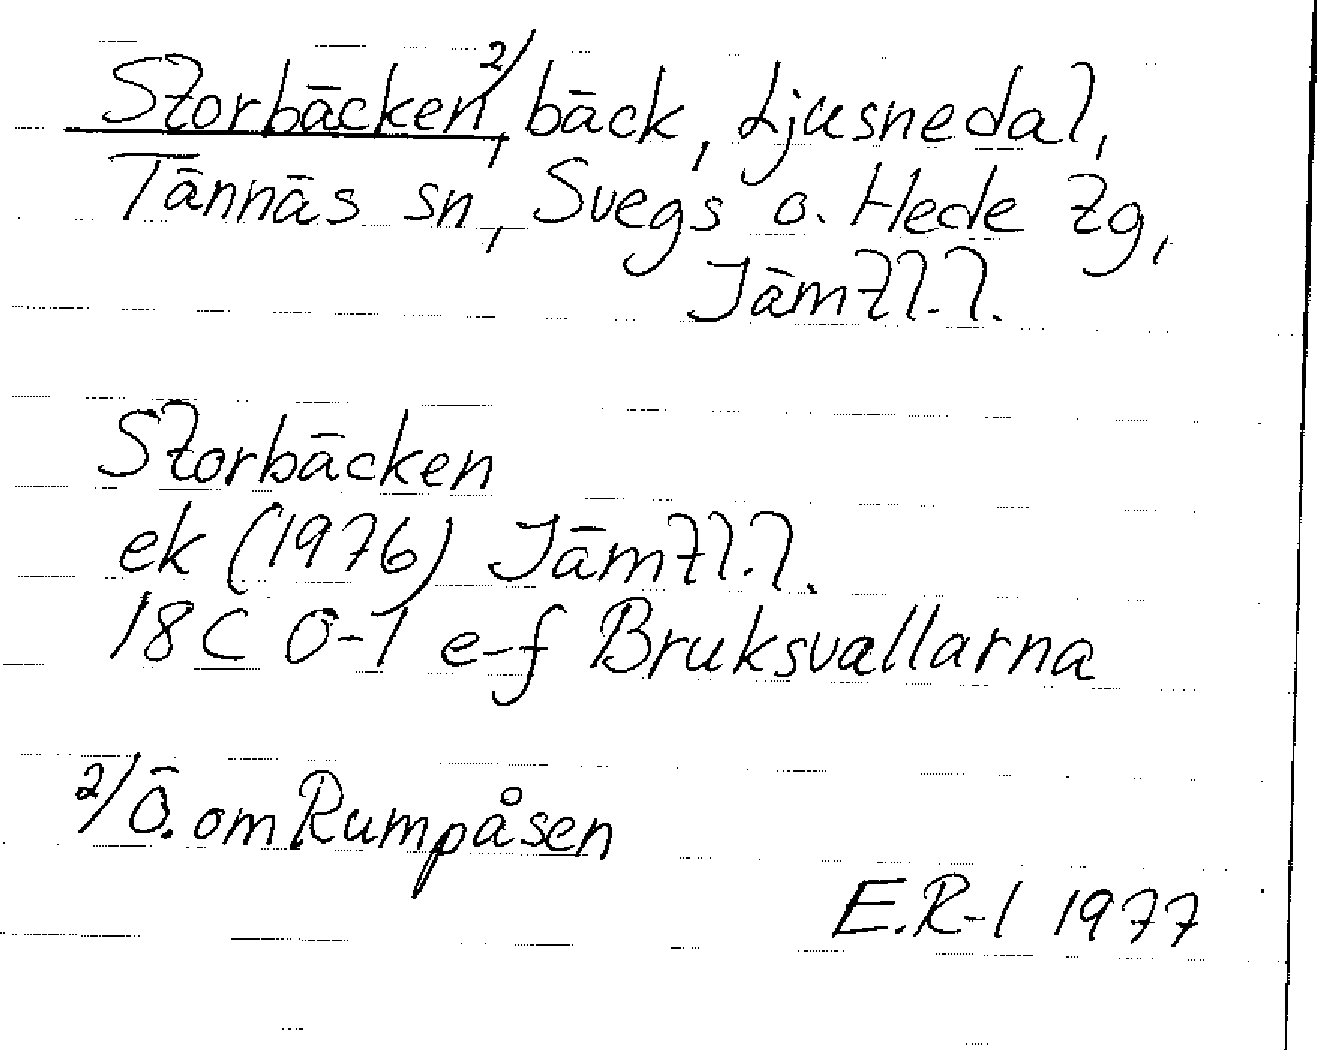 Storbäcken, 2/ bäck, Ljusnedal,
Tännäs sn, Svegs o. Hede tg,
Jämtl.l.
Storbäcken
ek (1976) Jämtl.l.
18C 0-1 e-f Bruksvallarna
2/ Ö. om Rumpåsen
E.R-l 1977